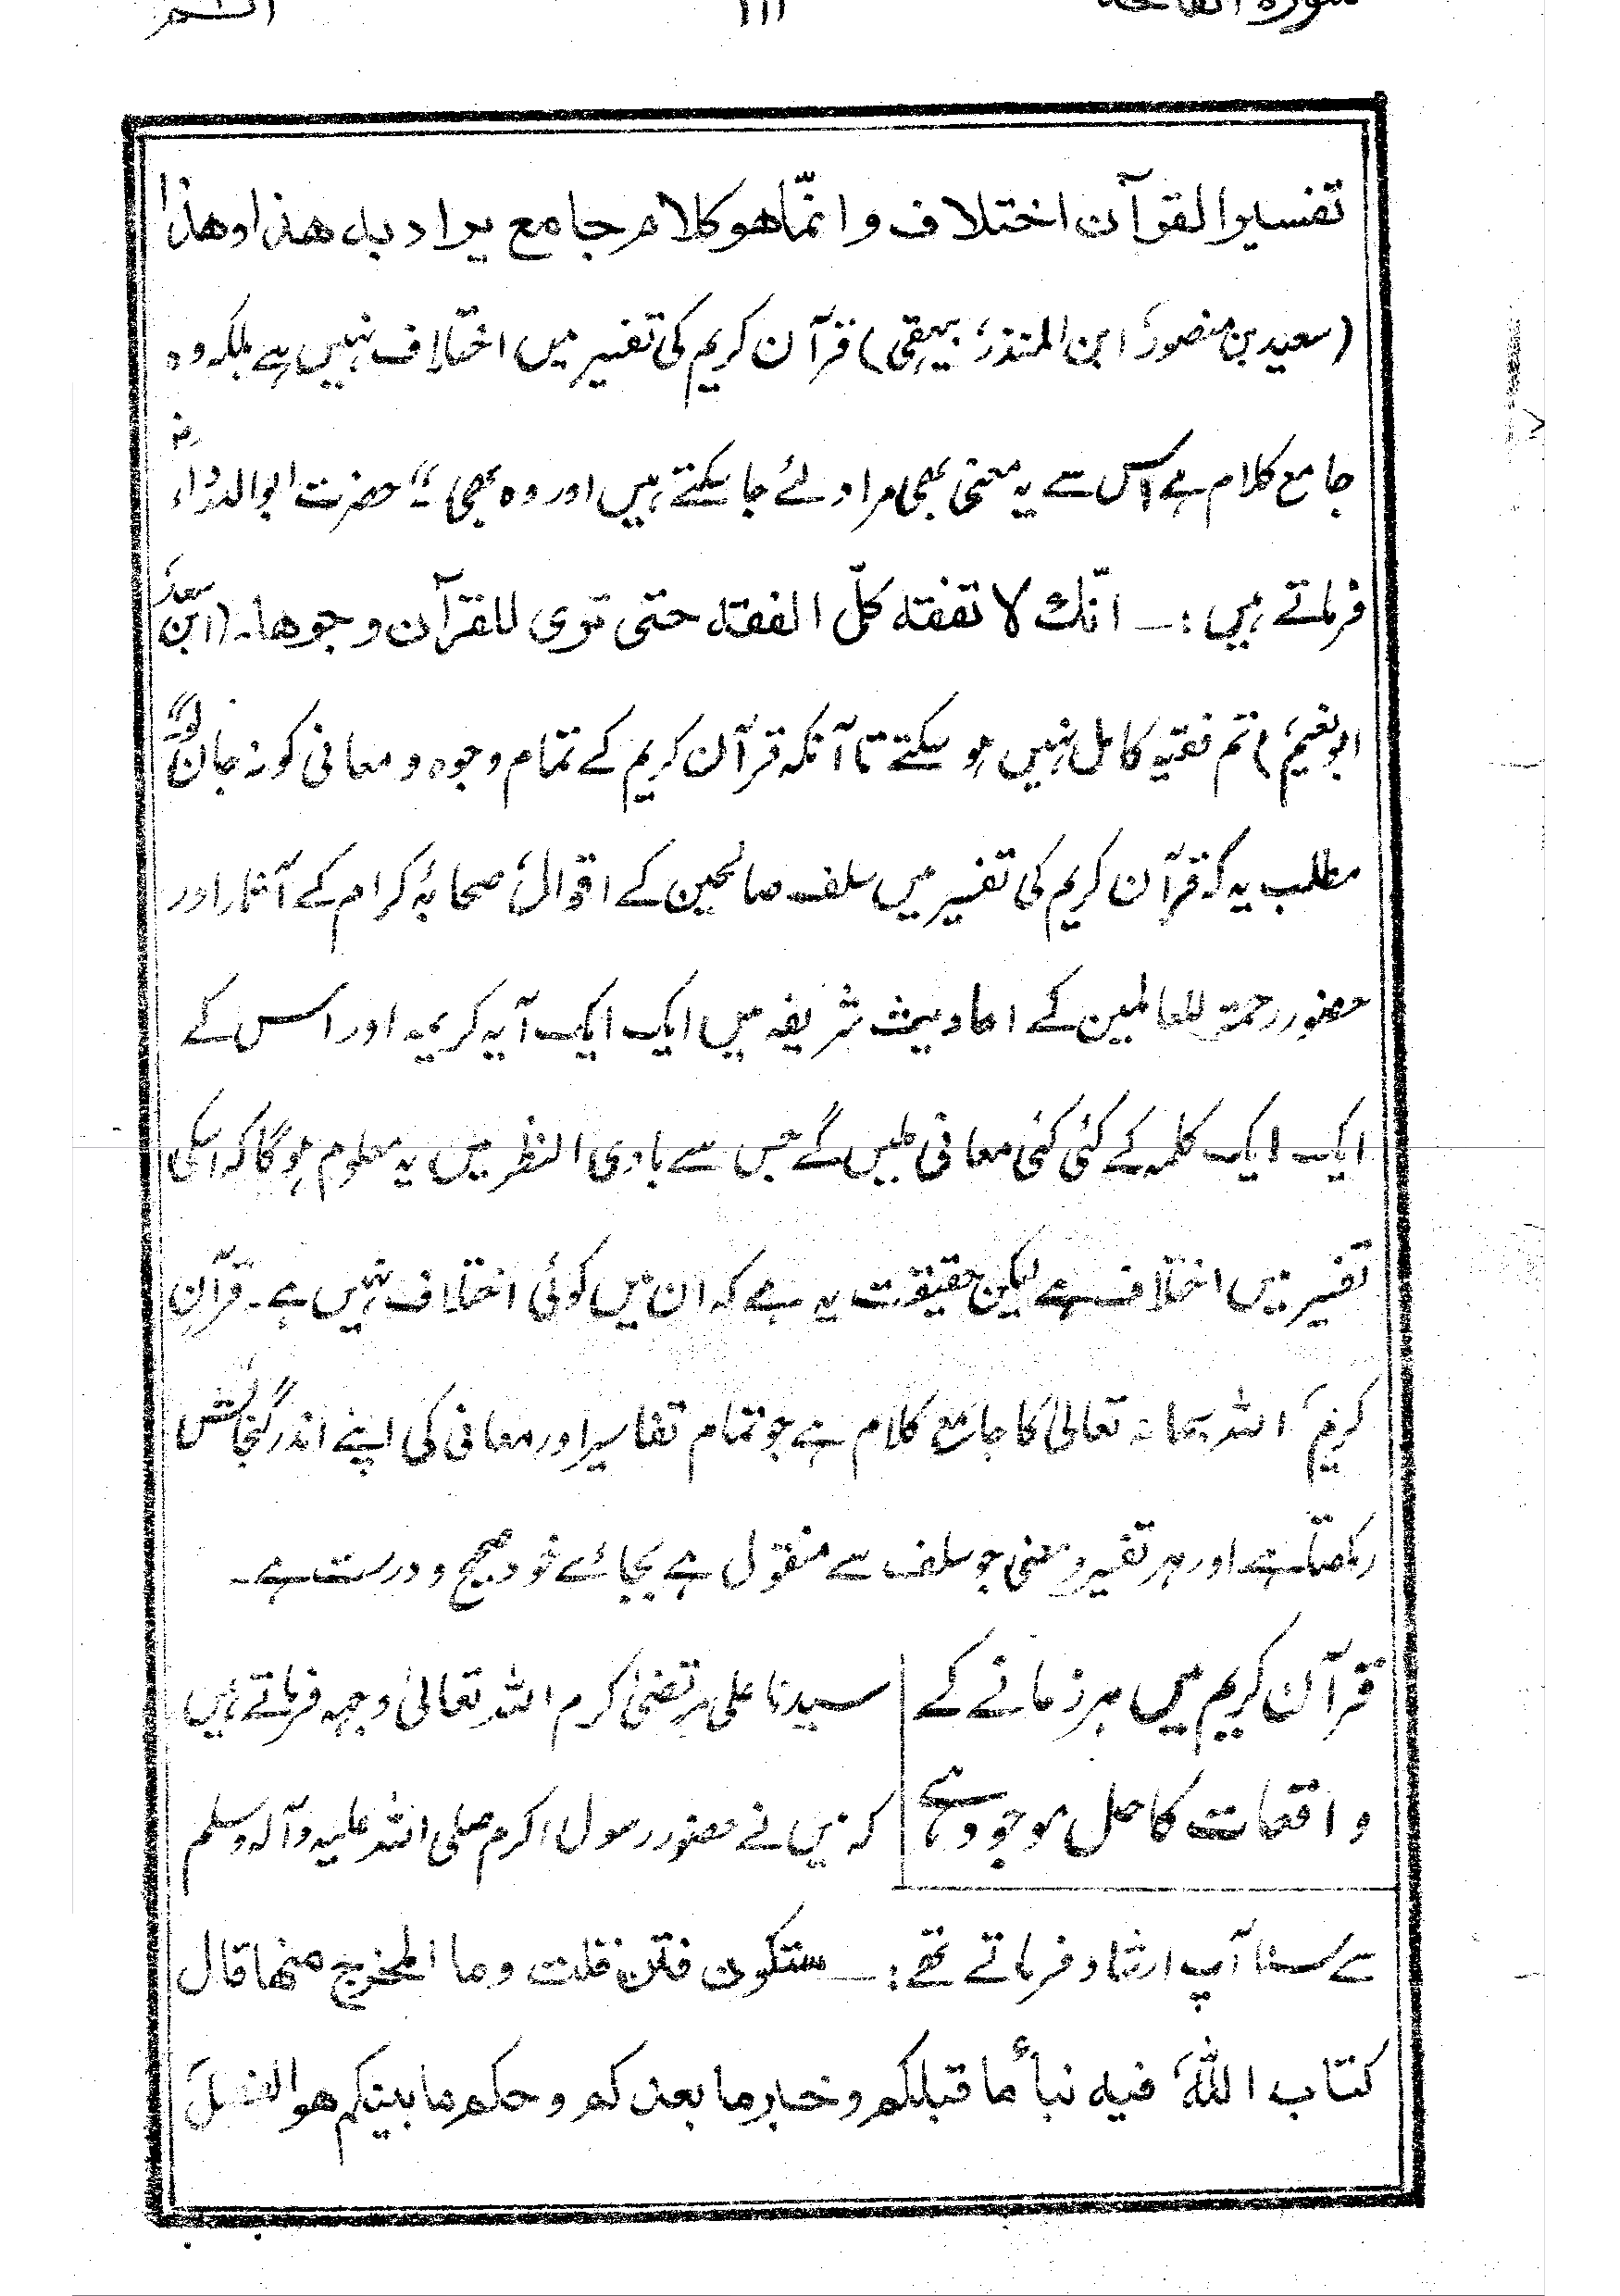 سورة الفاتحة ۱۱۱ الٓمٓ
تفسیر القرآن اختلاف وانّما هو کلام جامع یراد بہ هذا او هذا
(سعید بن منصور، ابن المنذر، بیہقی) قرآن کریم کی تفسیر میں اختلاف نہیں ہے بلکہ وہ
جامع کلام ہے اس سے یہ معنی بھی مراد لئے جا سکتے ہیں اور وہ بھی ۔“ حضرت ابوالدرداءؓ
فرماتے ہیں :۔ انّک لا تفقہ کلّ الفقہ حتی تری للقرآن وجوها۔ (ابن سعد،
ابونعیم) تم فقیہ کامل نہیں ہو سکتے تا آنکہ قرآن کریم کے تمام وجوہ و معانی کو نہ جان لو“
مطلب یہ کہ قرآن کریم کی تفسیر میں سلف صالحین کے اقوال، صحابۂ کرام کے آثار اور
حضور رحمۃ للعالمین کے احادیث شریفہ میں ایک ایک آیہ کریمہ اور اس کے
ایک ایک کلمہ کے کئی کئی معانی ملیں گے جس سے بادی النظر میں یہ معلوم ہوگا کہ اسکی
تفسیر میں اختلاف ہے لیکن حقیقت یہ ہے کہ ان میں کوئی اختلاف نہیں ہے۔ قرآنِ
کریم، اللہ سبحانہ تعالیٰ کا جامع کلام ہے جو تمام تفاسیر اور معانی کی اپنے اندر گنجائش
رکھتا ہے اور ہر تفسیر و معنی جو سلف سے منقول ہے بجائے خود صحیح و درست ہے۔
قرآن کریم میں ہر زمانے کے
واقعات کا حل موجود ہے
سیدنا علی مرتضیٰ کرم اللہ تعالیٰ وجہہ فرماتے ہیں
کہ میں نے حضور رسول اکرم صلی اللہ علیہ وآلہ وسلم
سے سنا آپ ارشاد فرماتے تھے :۔ ستکون فتن قلت وما المخرج منها قال
کتاب اللہ، فیہ نبأ ما قبلکم وخبر ما بعدکم وحکم ما بینکم هو الفصل